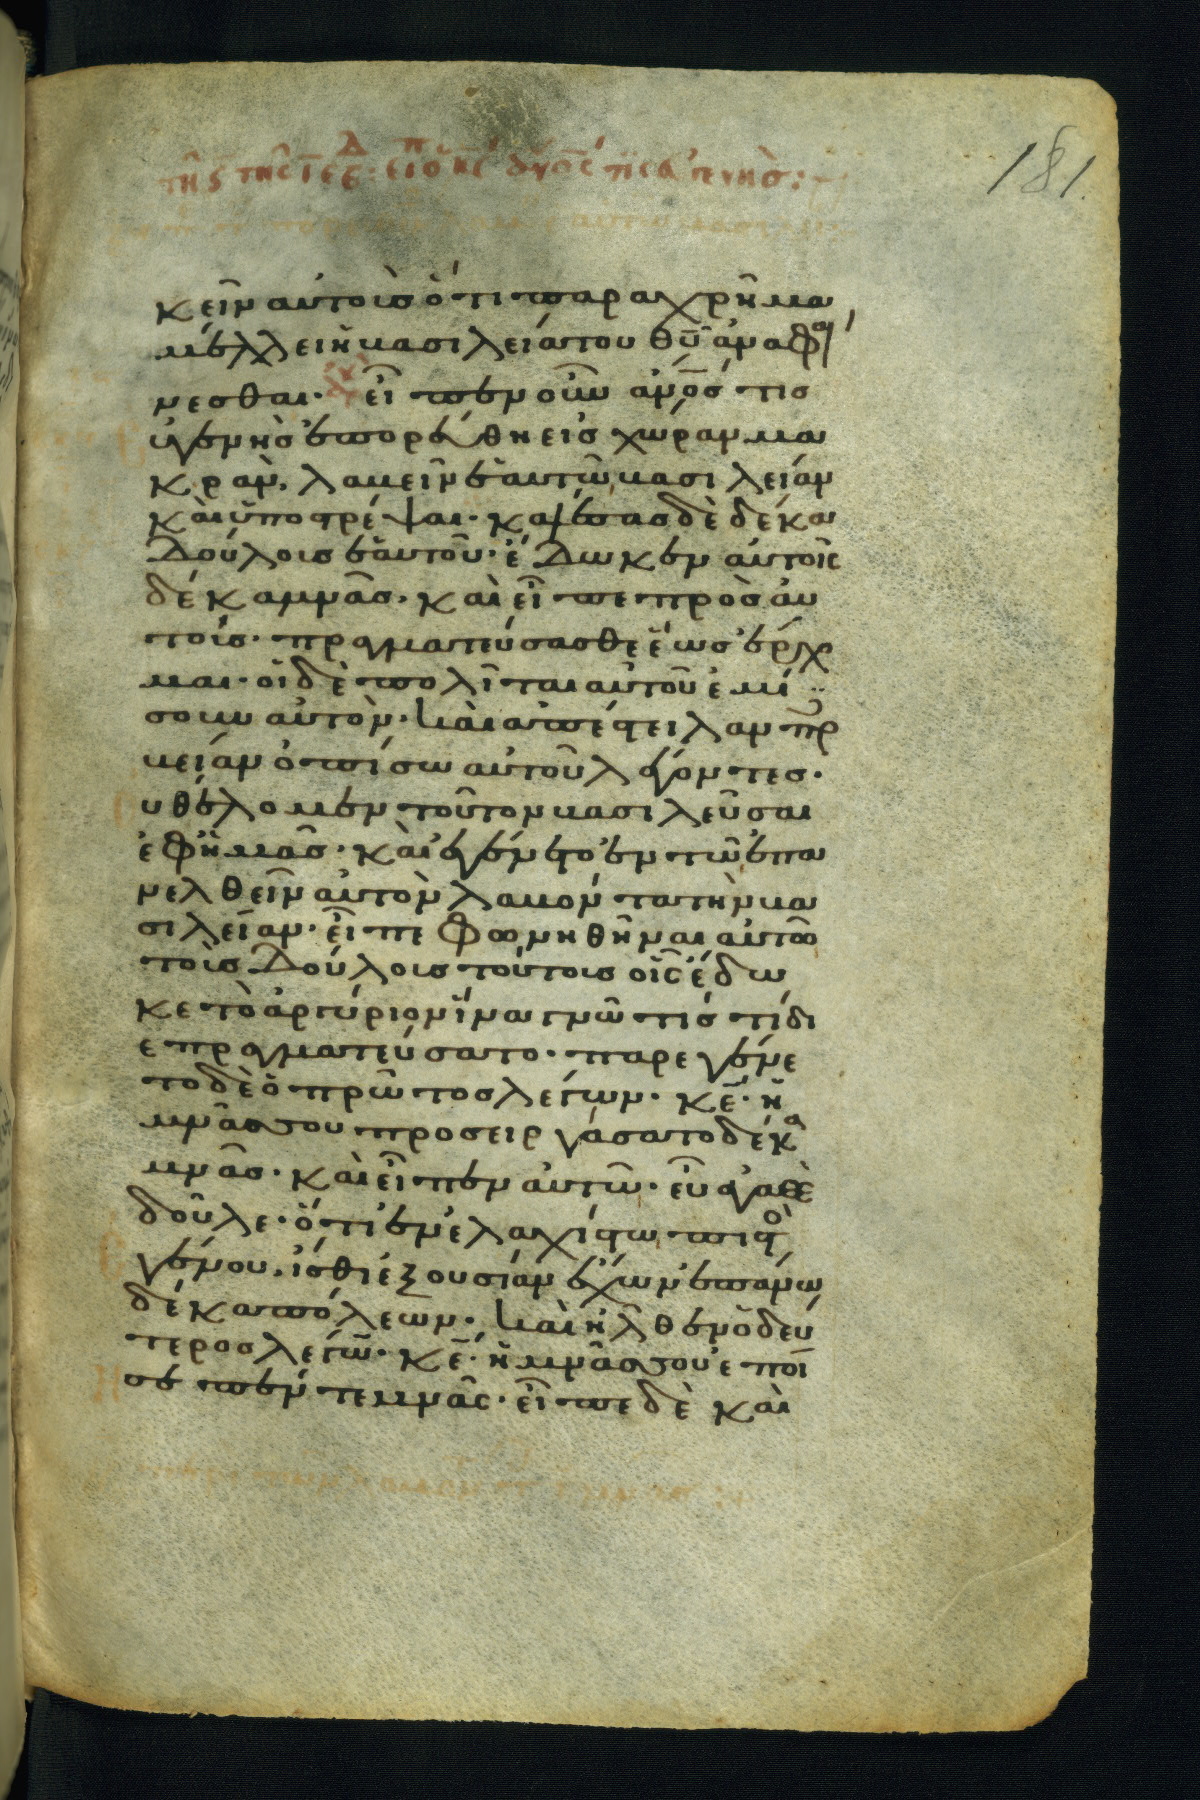 181
κεῖν αὐτοισ ὅτι παραχρῆμα
μέλλει ἡ βασιλεία του θῡ ἀναφαί
νεσθαι· εἶπεν οὖν ἄνο̅σ τισ
εὐγενὴσ ἐπορεύθη εἰσ χωραν μα
κραν, λαβεῖν ἑαυτῶ βασιλείαν
καὶ ὑποστρέψαι· καλέσασ δὲ δέκα
δούλουσ ἑαυτοῦ· ἔδωκεν αὐτοῖς
δέκα μνᾶσ· καὶ εἶπε πρὸσ αὐ
τούσ· πραγματεύσασθε ἕως ἔρχο
μαι· οἱ δὲ πολῖται αὐτοῦ ἐμί
σουν αὐτὸν· καὶ ἀπέστειλαν πρε
σβείαν ὀπίσω αὐτοῦ λέγοντεσ·
οὐ θέλομεν τοῦτον βασιλεῦσαι
ἐφ ἡμᾶσ· καὶ ἐγένετο ἐν τῶ ἐπα
νελθεῖν αὐτὸν λαβόντα τὴν βα
σιλείαν· εἶπε φωνηθῆναι αὐτῶ
τοὺσ δούλουσ τούτουσ οἷς ἔδω
κε τὸ ἀργύριον ἵνα γνῶ τίσ τί δι
επραγματεύσατο· παρεγένε
το δὲ ὁ πρῶτοσ λέγων· κε̅· ἡ
μνᾶ σου προσειργάσατο δέκα
μνᾶσ· καὶ εἶπεν αὐτῶ· εὖ ἀγαθὲ
δοῦλε· ὅτι ἐν ἐλαχίστω πιστὸσ
ἐγένου, ἴσθι ἐξουσίαν ἔχων ἐπάνω
δέκα πόλεων· καὶ ἦλθεν ὁ δεύ
τεροσ λέγω̅· κε̅· ἡ μνᾶ σου ἐποί
σε πέντε μνᾶς· εἶπε δὲ καὶ